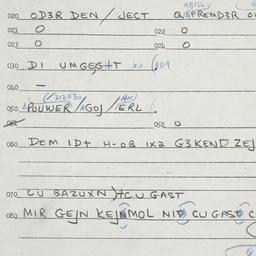 ABISL
020 OD3R DEN / JECT Q/AFREMD3R
021 O 022 O
023 O 024 O
030 DI UMGEGHT xx (009
040 —
050 APOUWER /AGOJ /ERL.
052 O
060 DEM IDT H-OB 1X2 G3KEND ZEJ
070 CU BAZUXN)HCU GAST
080 MIR GEJN KEJNMOL NIT CU GAST C